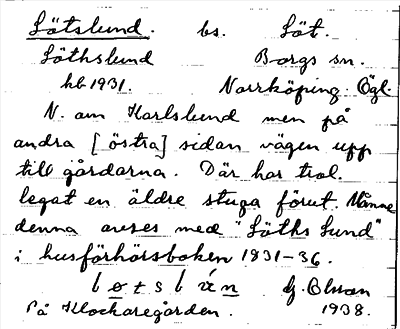 Lötslund. bs. Löt.
Löthslund Borgs sn.
hb 1931. Norrköping. Ögl.
N. om Karlslund men på
andra [östra] sidan vägen upp
till gårdarna. Där har trol.
legat en äldre stuga förut. Månne
denna avses med "Löths Lund"
i husförhörsboken 1831-36.
G. Olsson
På Klockaregården. 1938.